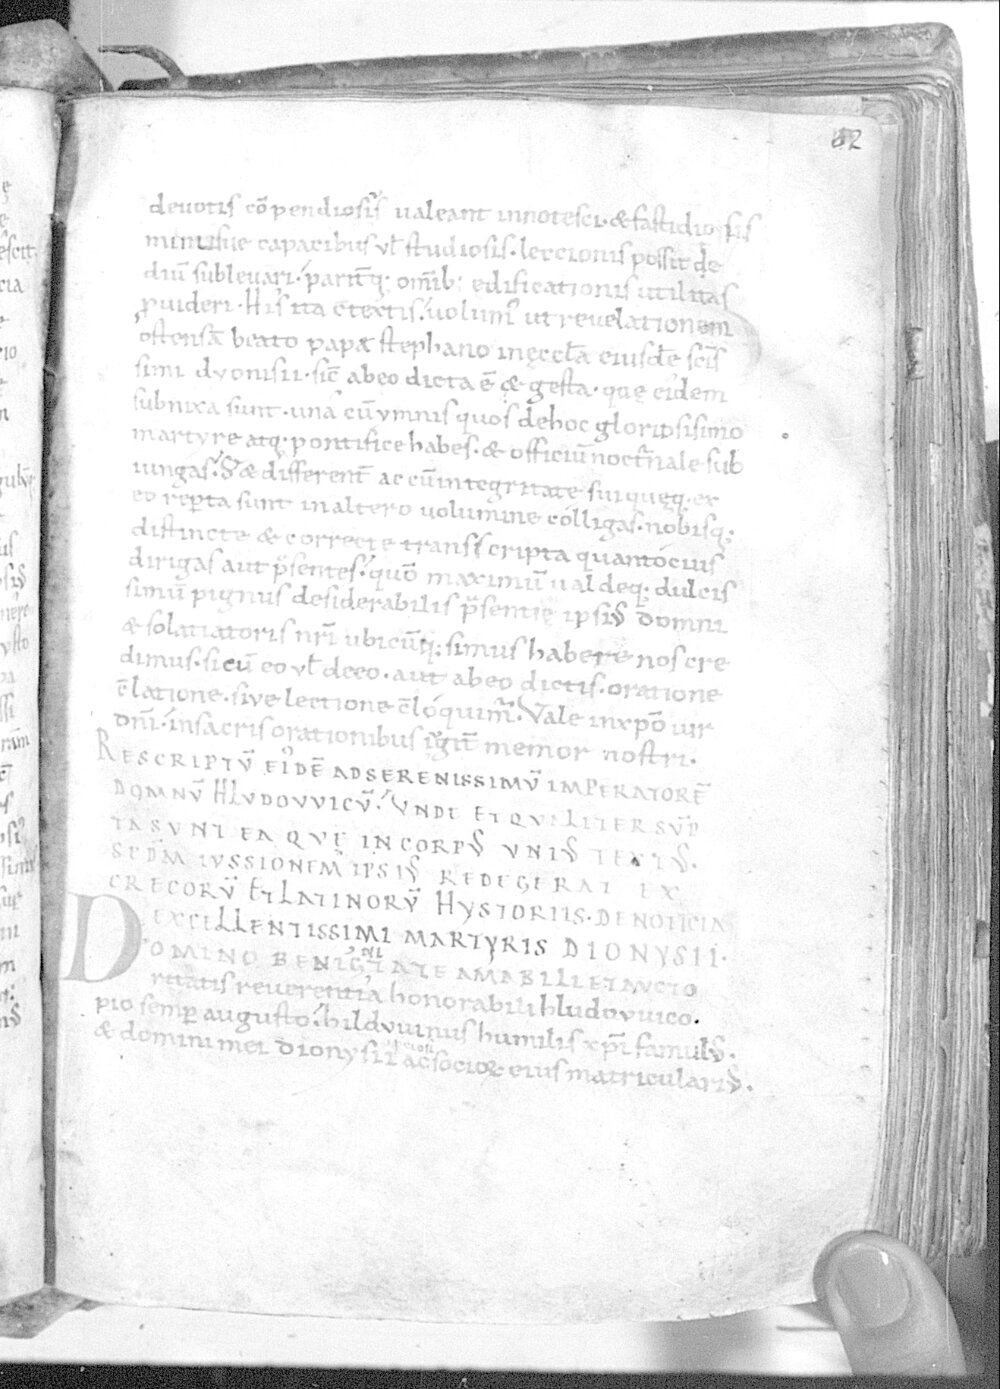 62
devotis cō pendiosis ualeant innotesci· & fastidio sis
minusue capacibus vł studiosis· leccionis possit de
diū sublevari· parit̄q; om̄ib; edificationis utilitas
ꝓuideri· His ita c̄textis· uolum᾽ ut revelationem
ostensā beato papæ stephano in ęccł̄a eiusdē scīs
simi dyonisii· sic̄ ab eo dicta ē & gesta· quę eidem
subnixa sunt· una cū ymnis quos de hoc gloriosissimo
martyre atq; pontifice habes· & officiū noct̄nale sub
iungas· S& different̄ ac cū integritate sui quęq; ex
eo reꝑta sunt in altero volumine colligas· nobisq;
distincte & correcte transscripta quantocius
dirigas aut p̄sentes· quō maximū valdeq; dulcis
simū pignus desiderabilis p̄sentię ipsiꝰ domni
& solatiatoris nr̄i ubicūq; simus habere nos cre
dimus· si cū eo vł de eo· aut ab eo dictis· oratione
c̄latione· sive lectione c̄loquim᾽· Vale in xp̄o uir
dn̄i· in sacris orationibus iḡit̄ memor nostri·
RESCRIPTŪ EI᾽DĒ AD SERENISSIMŪ IMPERATORĒ
DOMNŪ HLVDOVVICŪ· UNDE ET QUALITER SVP
TA SVNT EA QVĘ IN CORPꝰ VNIꝰ TEXTꝰ·
SCDM IVSSIONEM IPSIꝰ REDEGERAT EX
GRECORŪ ET LATINORŪ HYSTORIIS· DE NOTICIA
EXCELLENTISSIMI MARTYRIS DIONYSII·
DOMINO BENIGNITATE AMABILI ET AVCTO
ritatis reverentia honorabili hludovuico.
pio semꝑ augusto· hilduuinus humilis xp̄i famulꝰ·
& domini mei dionysii ac socioꝝ eius matriculariꝰ·